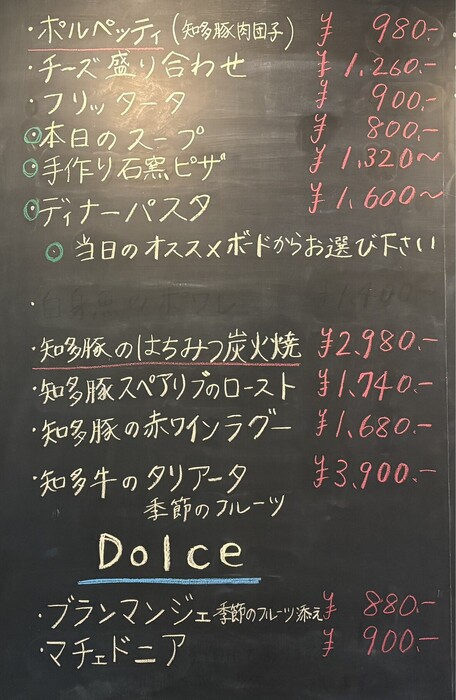 ・ポルペッティ(知多豚肉団子) ¥ 980.-
・チーズ盛り合わせ ¥1,260.-
・フリッタータ ¥ 900.-
◎本日のスープ ¥ 800.-
◎手作り石窯ピザ ¥1,320〜
◎ディナーパスタ ¥1,600〜
◎当日のオススメボードからお選び下さい
・知多豚のはちみつ炭火焼 ¥2,980.-
・知多豚スペアリブのロースト ¥1,740.-
・知多豚の赤ワインラグー ¥1,680.-
・知多牛のタリアータ ¥3,900.-
季節のフルーツ
Dolce
・ブランマンジェ 季節のフルーツ添え ¥ 880.-
・マチェドニア ¥ 900.-